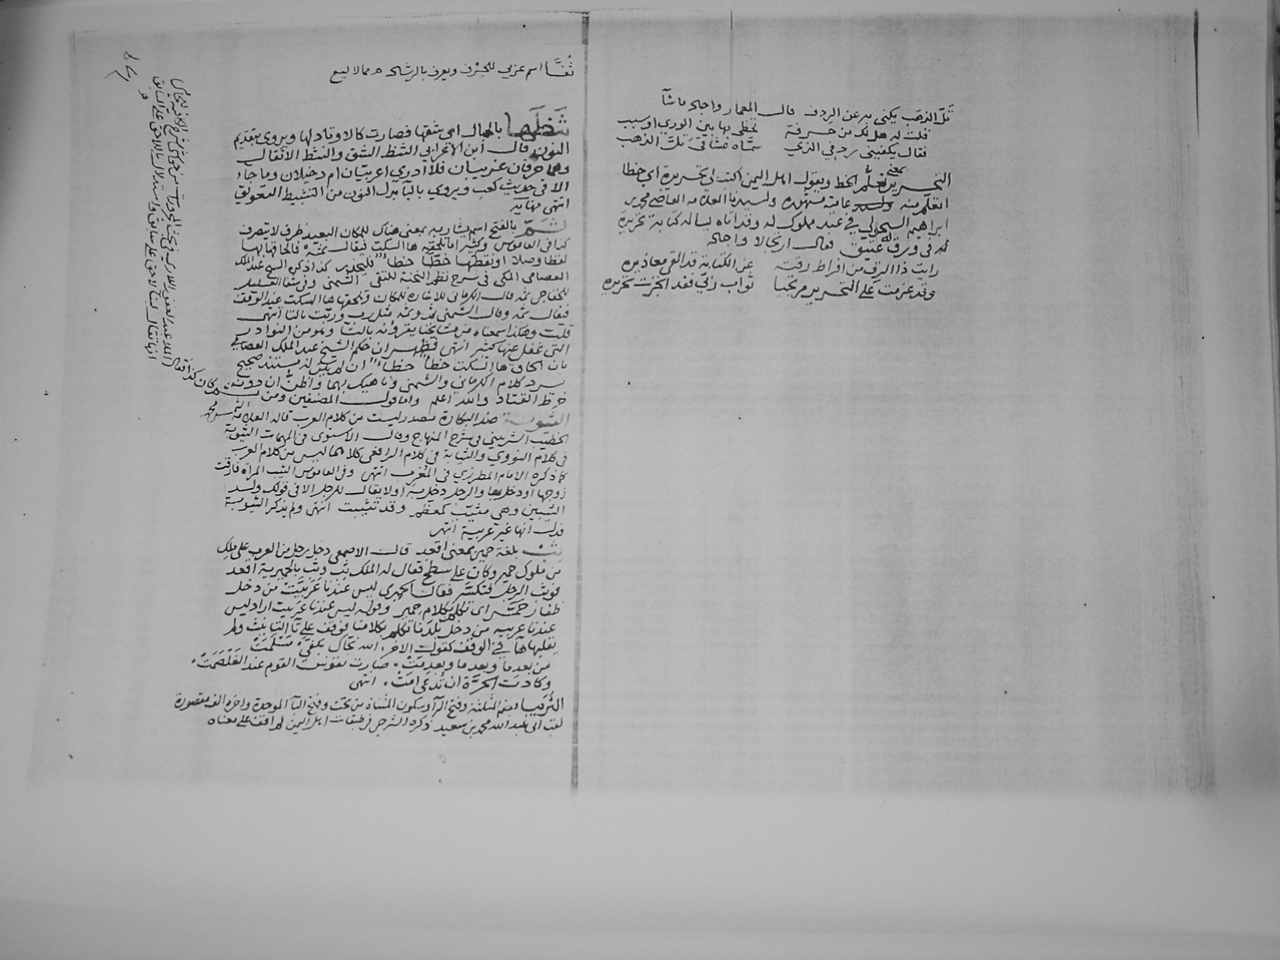 تل الذهب يكنى به عن الردف قال المعمار واجاد ما شآ
قلت له هل لك من حرفة تحظى بها بين الورى او سبب
فقال يكفيني ردفي الذي سماه عشاقي تل الذهب
التحرير بمعنى تعلم الخط ويقول اهل اليمن اكتب لي تحريرة اي خطا
اتعلم منه وهي عامية مشهوره ولسيدنا العلامه القاضي محمد بن
ابراهيم السحولي في عبد مملوك له وقد اتاه يساله كتابة تحريرة
له في ورق عتيق فقال ارتجالا واجاد
رايت ذا الرق من افراط رقته عن الكتابة قد القى معاذيره
وقد عزمت على التحرير مرتجيا ثواب ربي فقد انجزت تحريره
ثُفَّا اسم عربي للحرف ويعرف بالرشاد مما لا يسع
ثنطها بالجبال اي شقها فصارت كالاوتاد لها ويروى بتقديم
النون قال ابن الاعرابي الثنط الشق والنثط الاثقال
وهما حرفان غريبان فلا ادري اعربيان ام دخيلان وما جاء
الا في حديث كعب ويروي بالبآ بدل النون من التثبيط التعويق
انتهى نهايه
ثَمّ بالفتح اسم يشار به بمعنى هناك للمكان البعيد ظرف لا يتصرف
كذا في القاموس وكثيرا ما تلحقه ها السكت فيقال ثمه فالحاقها بها
لفظا وصلا او نقطها خطا خطأ فليحذر كذا ذكره الشيخ عبد الملك
العصامي المكي في شرح نظم النخبة للتقي الشمني وفي شفا الغليل
للخفاجي ثمه قال الكرماني للاشاره للمكان وتلحقها ها السكت عند الوقف
فيقال ثمه وقال الشمني ثم وثمه مثل رب وربت بالتا انتهى
قلت وهكذا سمعناه من مشايخنا يقرؤنه بالتا وهو من النوادر
التي غفل عنها كثير انتهى فظهر ان حكم الشيخ عبد الملك العصامي
بان الحاق ها السكت خطأ خطاء ان لم يتبين له مستند صحيح
يرد كلام الكرماني والشمني وناهيك بهما واظن ان دونه
خرط القتاد والله اعلم واما قول المصنفين ومن ثمه كان كذا
الثيوبة ضد البكارة مصدر ليست من كلام العرب قاله العلامه الشمس محمد
الخطيب الشربيني في شرح المنهاج وقال الاسنوي في المهمات الثيوبة
في كلام النووي والثيابة في كلام الرافعي كلاهما ليس من كلام العرب
كما ذكره الامام المطرزي في المغرب انتهى وفي القاموس الثيب المراه فارقت
زوجها او دخل بها والرجل دخل به او لا يقال للرجل الا في قولك ولد
الثيبين وهي مثيّب كمعظم وقد تثيبت انتهى ولم يذكر الثيوبة
فدل انها غير عربية انتهى
ثب بلغة حمير بمعنى اقعد قال الاصمعي دخل رجل من العرب على ملك
من ملوك حمير وكان على سطح فقال له الملك ثب وثب بالحميرية اقعد
فوثب الرجل فتكسر فقال الحميري ليس عندنا عربيت من دخل
ظفار حَمَّر اي تكلم بكلام حمير وقوله ليس عندنا عربيت اراد ليس
عندنا عربيه من دخل بلدنا تكلم بكلامنا فوقف على تا التانيث ولم
يقلبها ها في الوقف كقول الاخر الله نجاك بكفي مسلمت
من بعد ما وبعد ما وبعدمت صارت نفوس القوم عند الغلصمت
وكادت الحرة ان تدعى امت انتهى
الثُرَيبا بضم المثلثة وفتح الرآ وسكون المثناة من تحت وفتح البآ الموحدة واخره الف مقصورة
لقب ابي عبد الله محمد بن سعيد ذكره الشرجي في طبقات اهل اليمن لم اقف على معناه